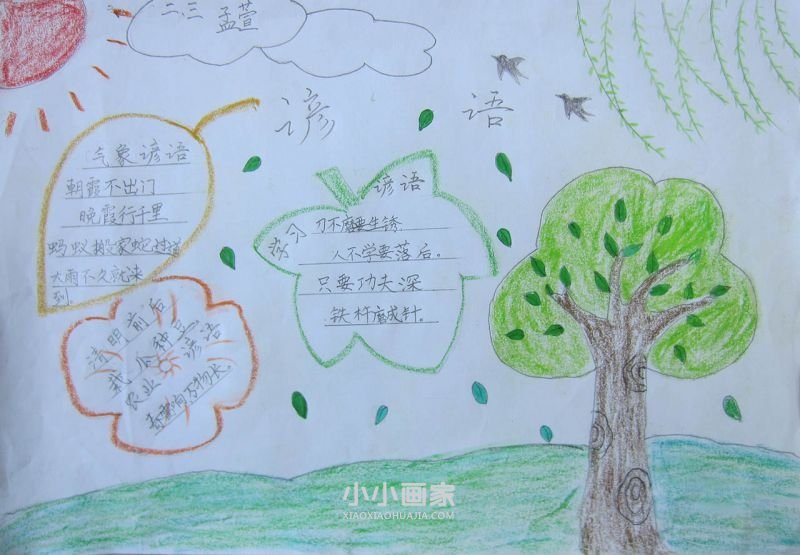 二.三 孟萱
谚语
气象谚语
朝霞不出门
晚霞行千里
蚂蚁搬家蛇过道
大雨不久就来
到。
谚语
刀不磨要生锈
人不学要落后。
只要功夫深
铁杵磨成针。
清明前后
栽瓜种豆
农业 谚语
万物长。
小小画家
XIAOXIAOHUAJIA.COM